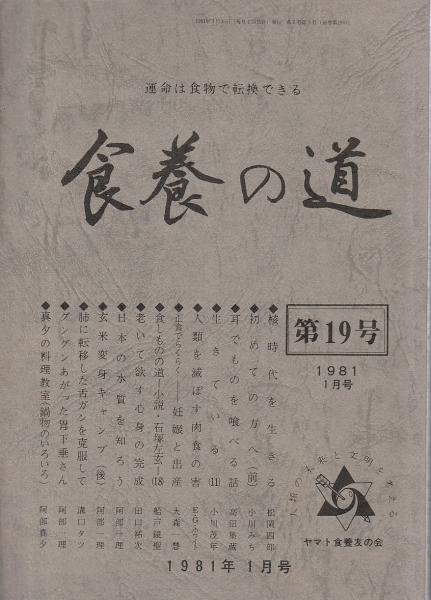 運命は食物で転換できる
食養の道
第19号
1981
1月号
◆核時代を生きる 松岡四郎
◆初めての方へ(前) 小川みち
◆耳でものを喰べる話 高田集蔵
◆生きている(11) 小川茂年
◆人類を滅ぼす肉食の害 E・G・ホワイト
◆正食でらくらく――妊娠と出産 大森一慧
◆食しものの道―小説・石塚左玄―(18) 船戸鏡聖
◆老いて欲す心身の完成 田口祐次
◆日本の水質を知ろう 阿部一理
◆玄米変身キャンプ(後) 阿部一理
◆肺に転移した舌ガンを克服して 溝口タツ
◆グングンあがった胃下垂さん 阿部一理
◆真夕の料理教室(鍋物のいろいろ) 阿部真夕
人類の未来と文明を考える
ヤマト食養友の会
1981年1月号